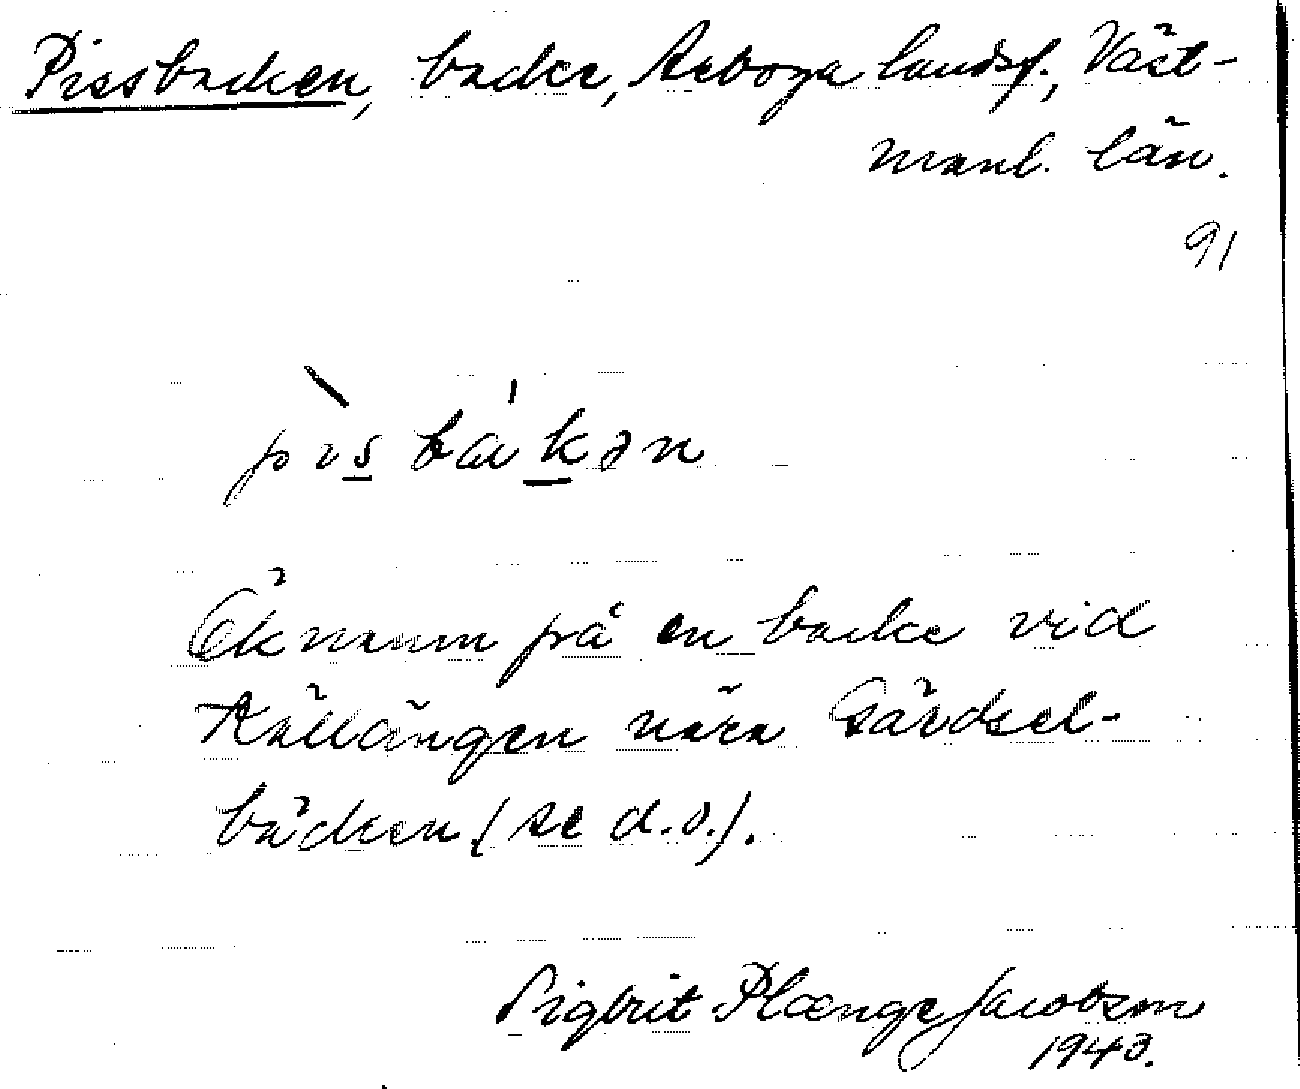 Pissbacken, backe, Arboga landsf., Väst-
manl. län.
91
pɪs bakən
Öknamn på en backe vid
Källängen nära Gärdsel-
bäcken (se d.o.).
Sigbrit Plænge Jacobson
1943.